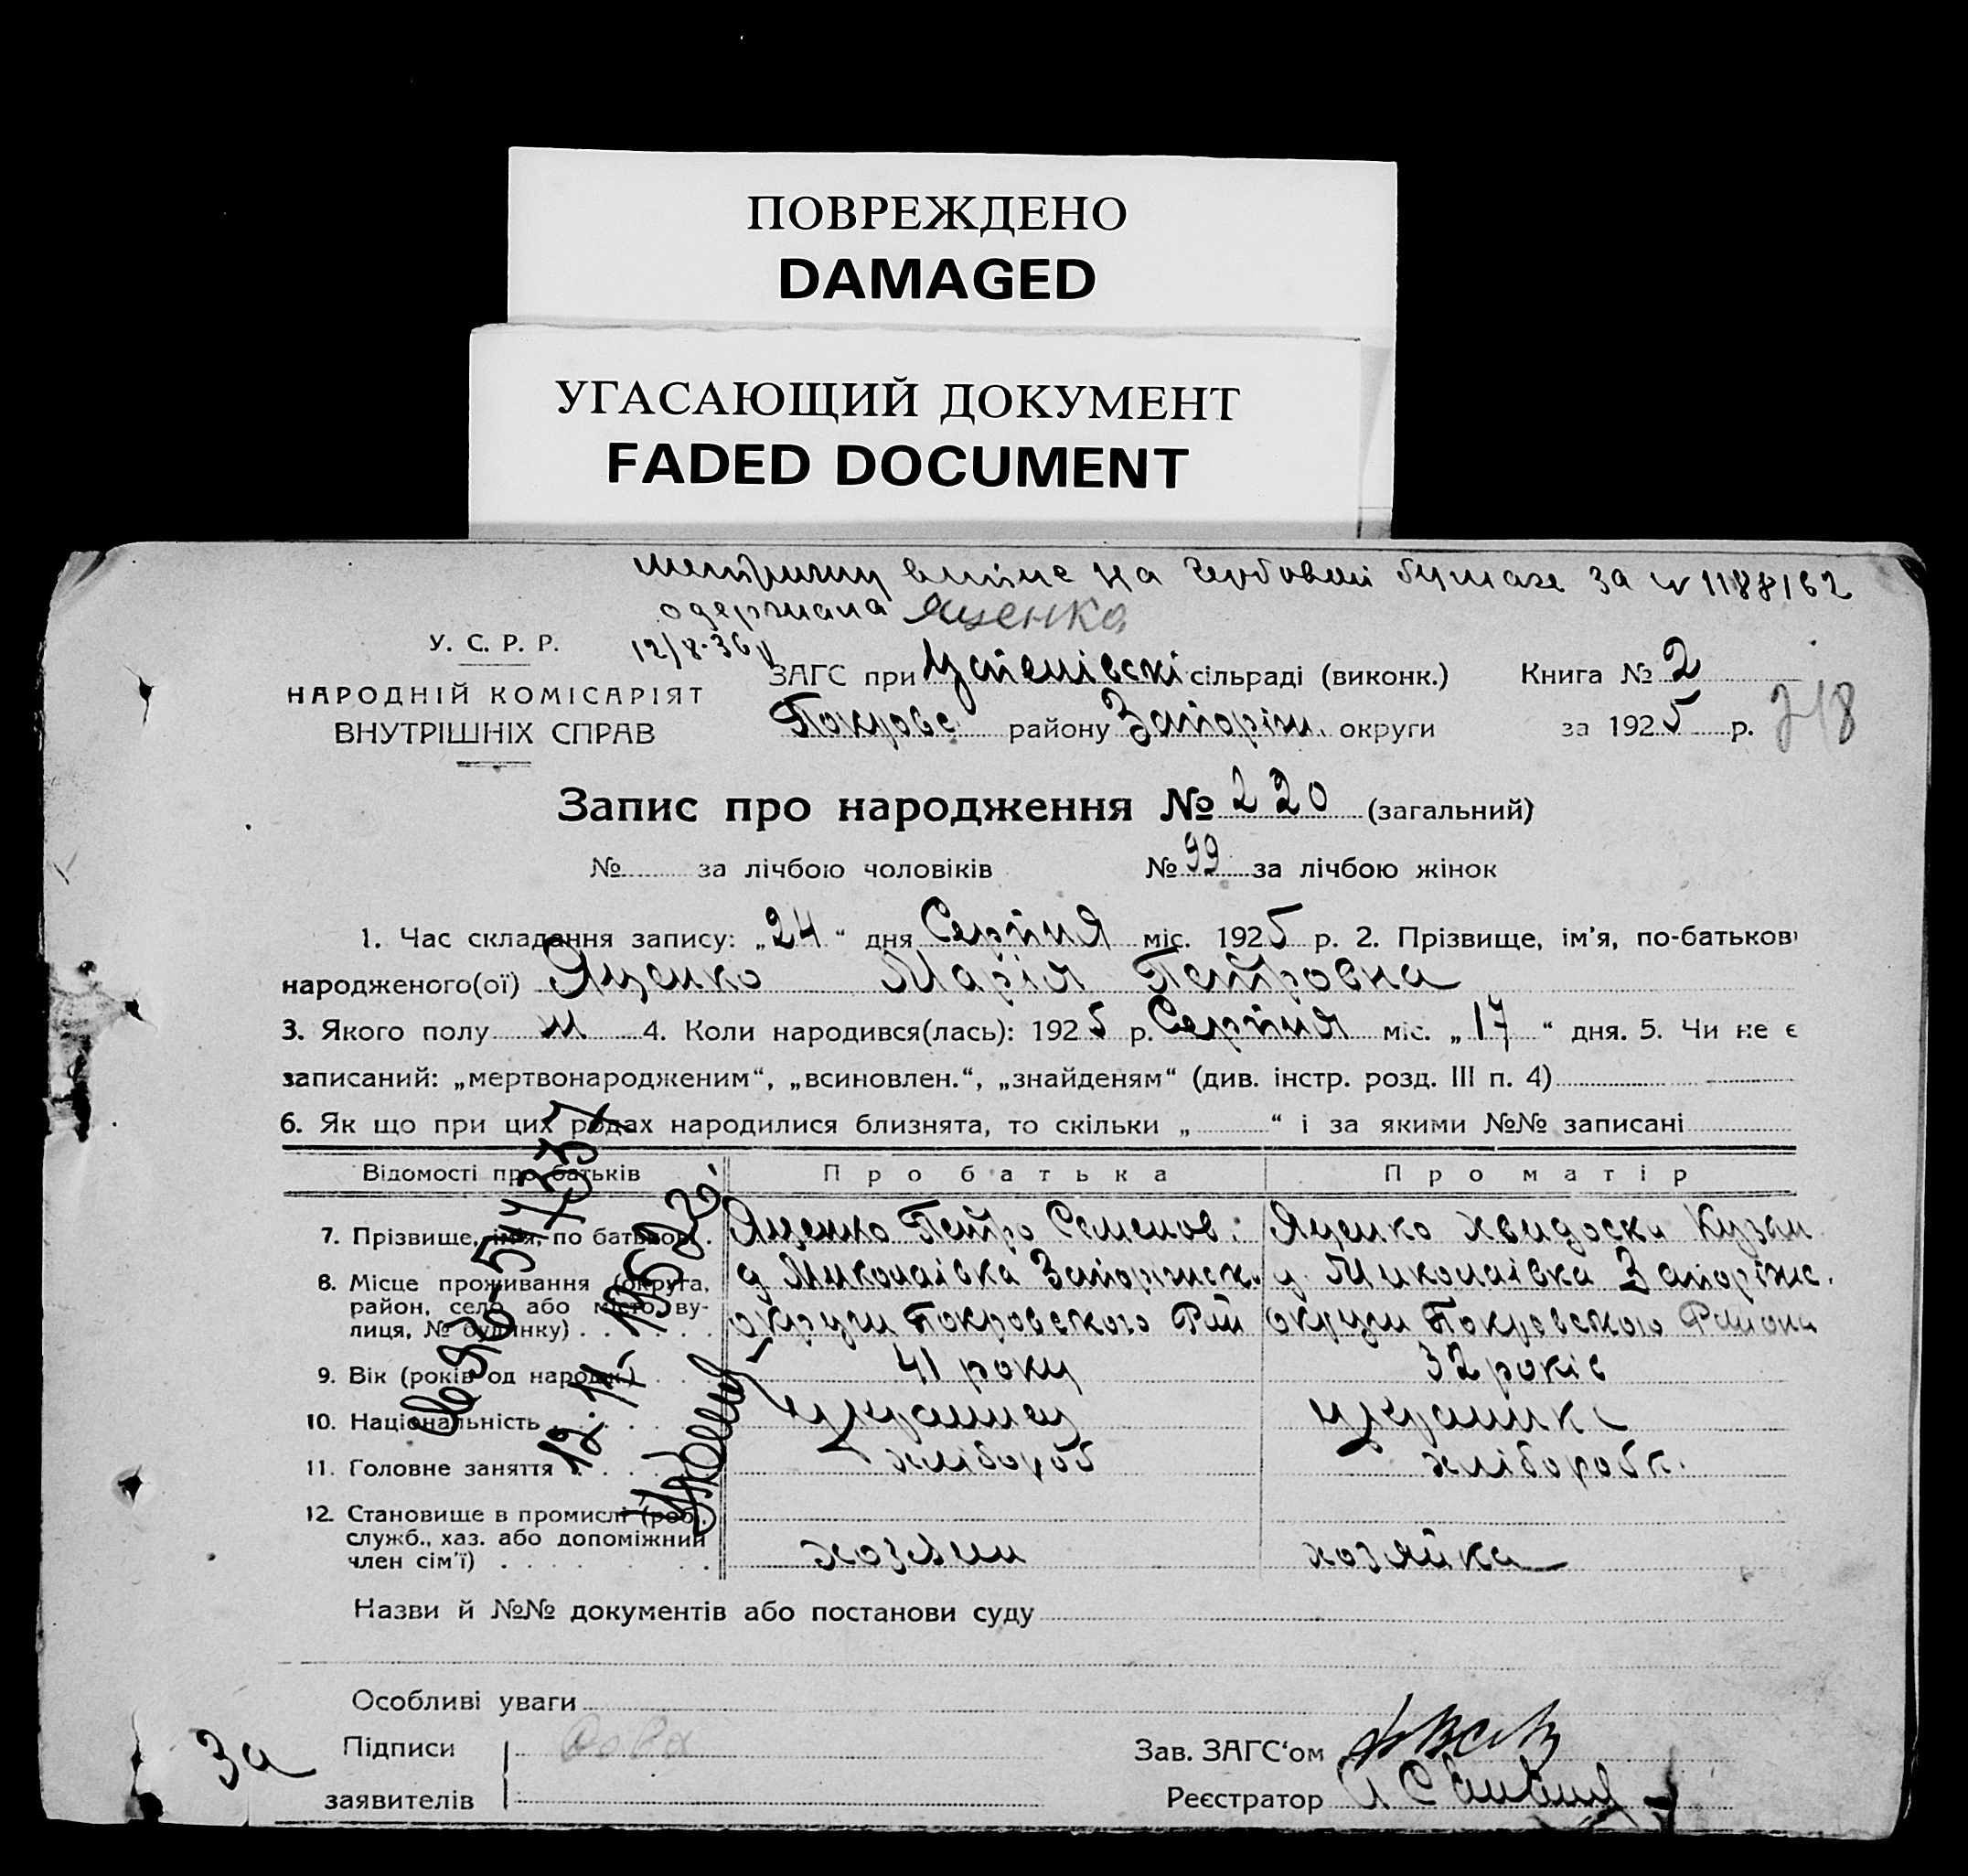 ПОВРЕЖДЕНО
DAMAGED
УГАСАЮЩИЙ ДОКУМЕНТ
FADED DOCUMENT
на бумазе за № 1188162
одержала Яценко
12/8-36
У. С. Р. Р.
НАРОДНІЙ КОМІСАРІЯТ
ВНУТРІШНІХ СПРАВ
ЗАГС при сільраді (виконк.) Книга № 2
Покровс району Запоріж. округи за 1925 р.
Запис про народження № 220 (загальний)
№ за лічбою чоловіків № 99 за лічбою жінок
1. Час складання запису: „24“ дня Серпня міс. 1925 р. 2. Прізвище, ім'я, по-батькові
народженого(ої) Яценко Марія Петровна
3. Якого полу 4. Коли народився(лась): 1925 р. Серпня міс. „17“ дня. 5. Чи не є
записаний: „мертвонародженим“, „всиновлен.“, „знайденям“ (див. інстр. розд. III п. 4)
6. Як що при цих родах народилися близнята, то скільки „ “ і за якими №№ записані
Відомості про батьків Про батька Про матір
7. Прізвище, ім'я, по батькові . Яценко Петро Семенов. Яценко Хвидоска Кузьм
8. Місце проживання (округа, район, село або місто, вулиця, № будинку) с Миколаівка Запоріжськ. округи Покровского Рай с. Миколаівка Запоріжс. округи Покровского Района
9. Вік (років од народж.) 41 року 32 років
10. Національність украинец украинка
11. Головне заняття хлібороб хліборобк.
12. Становище в промислі (роб., служб., хаз. або допоміжний член сім'ї) хозяин хозяйка
Назви й №№ документів або постанови суду
Особливі уваги
Підписи
заявителів
Зав. ЗАГС'ом
Реєстратор
3а